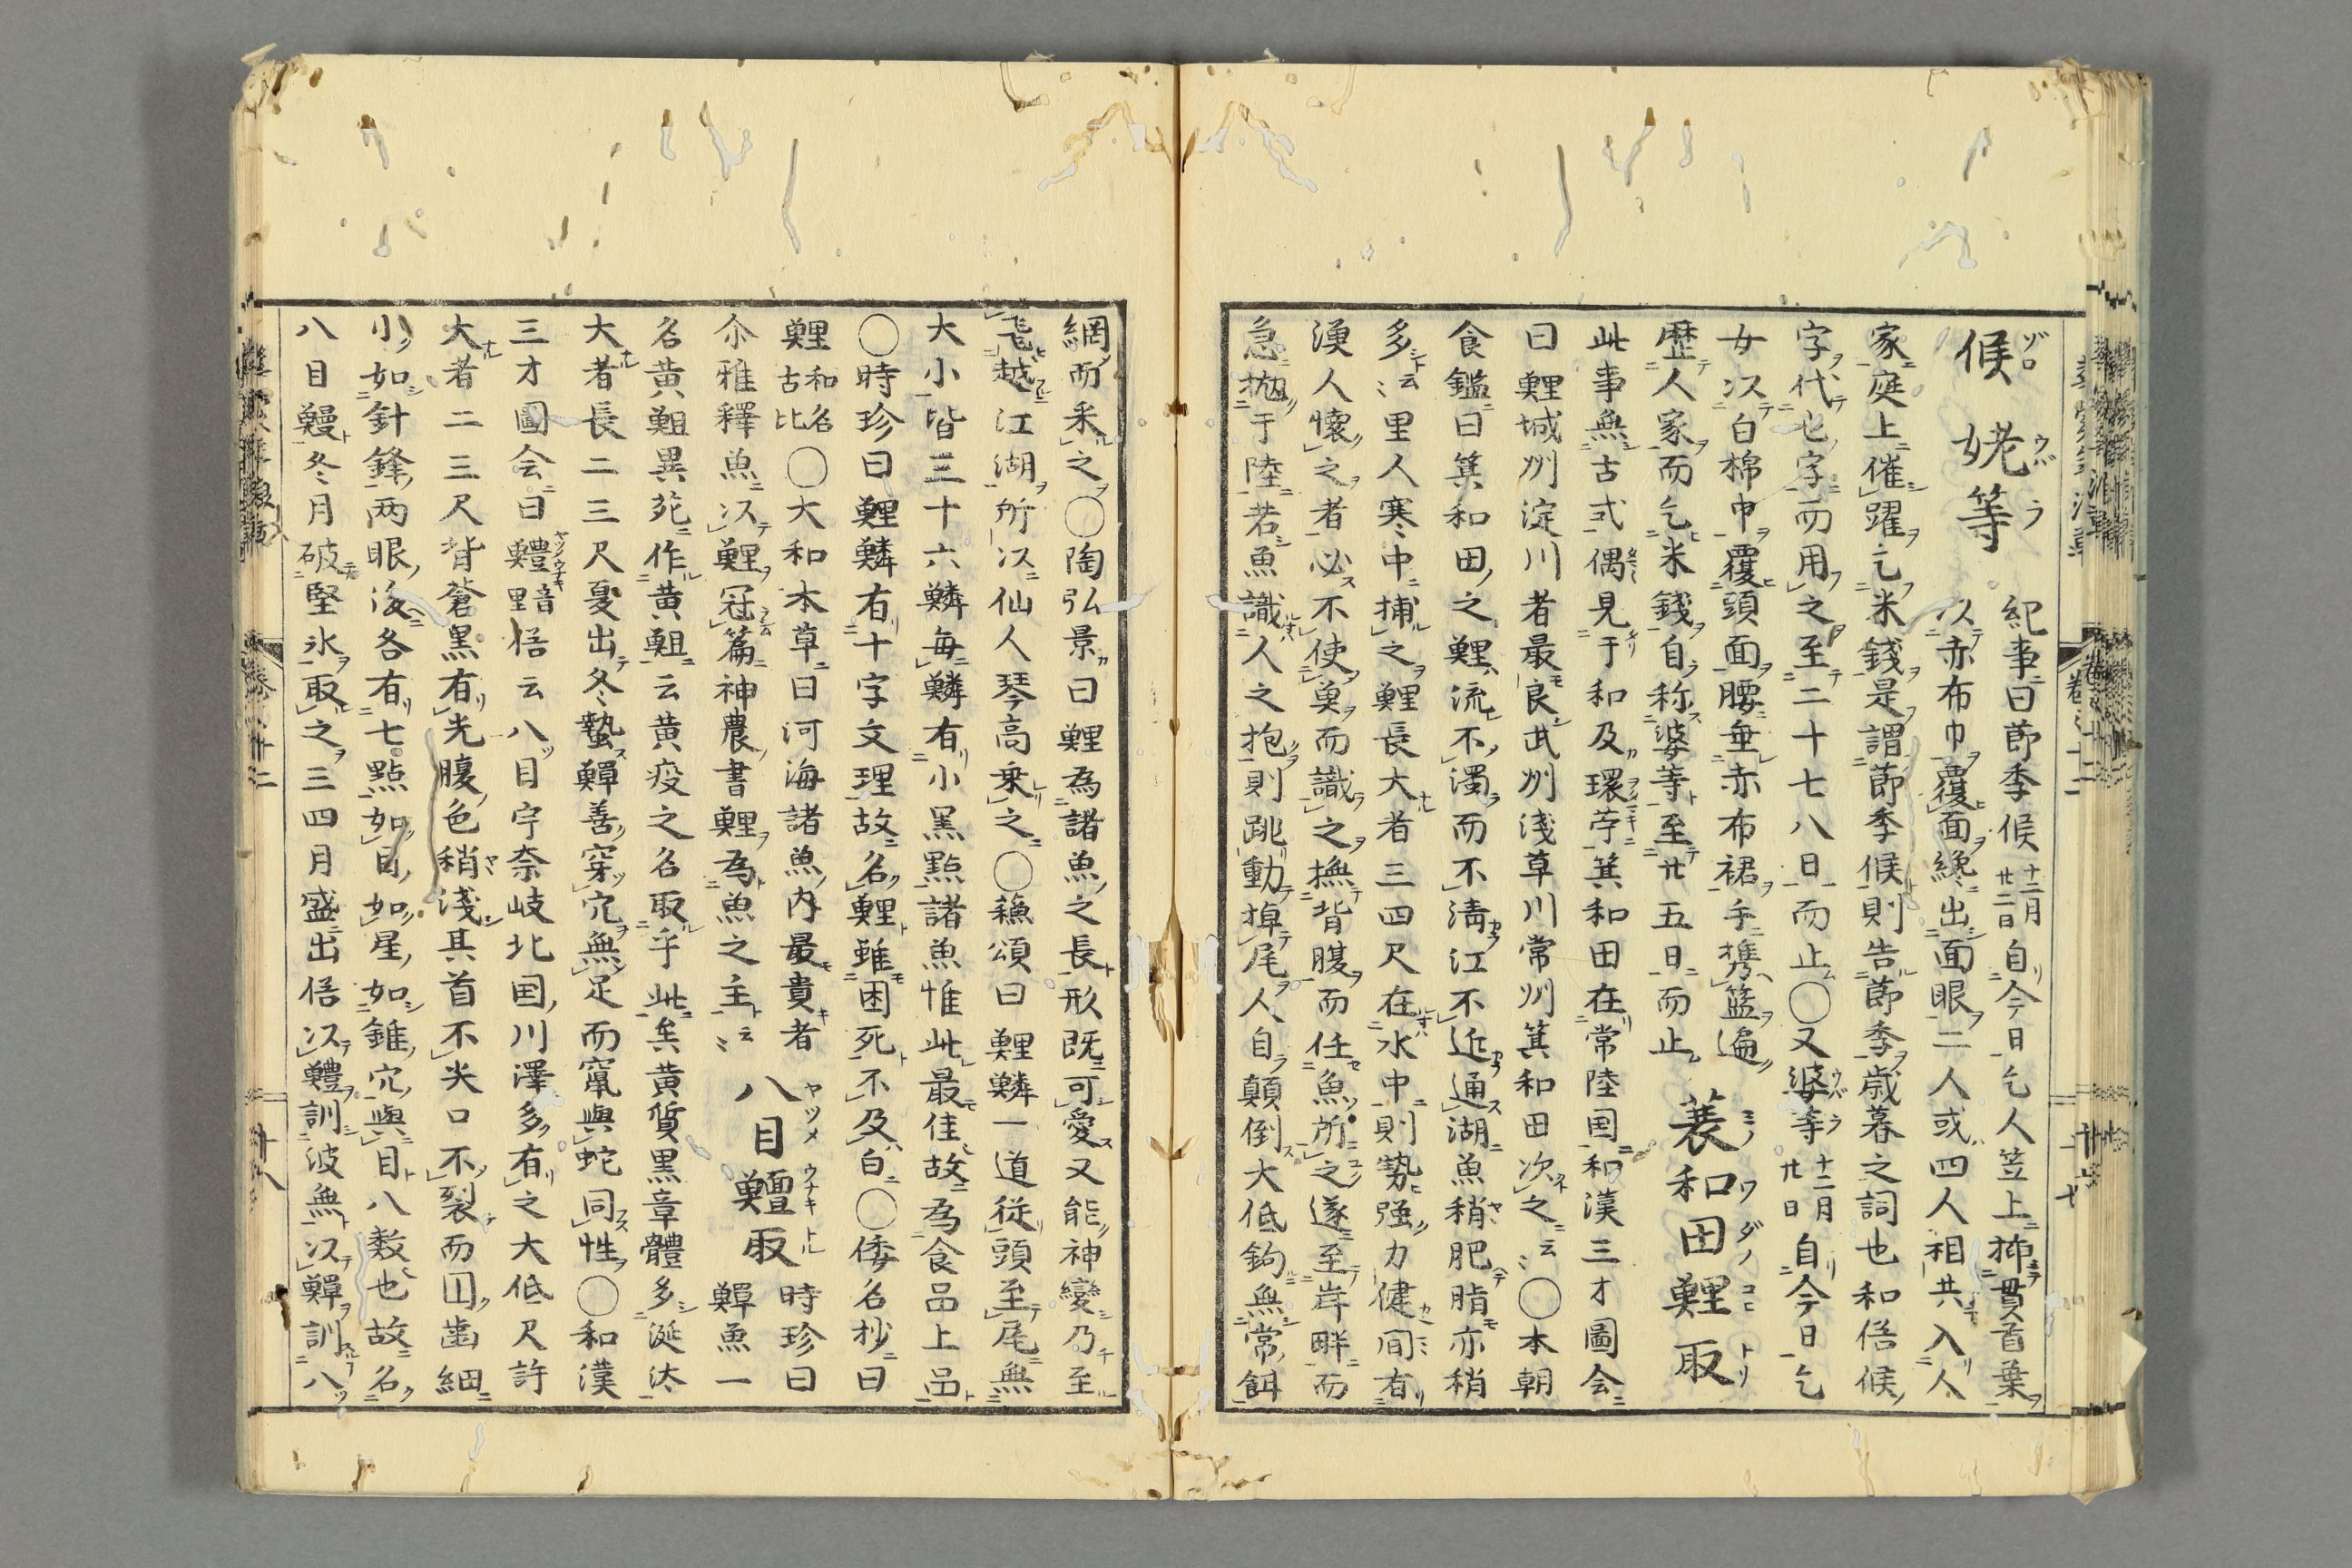 候姥等
紀事曰莭季候十二月廿二日自今日乞人笠上揷貫首葉
以赤布巾覆面纔出面眼二人或四人相共入人
家庭上催躍乞米錢是謂莭季候則告莭季歳暮之詞也和俗候
字代也字而用之至二十七八日而止〇又婆等十二月廿日自今日乞
女以白棉巾覆頭面腰垂赤布裙手携籃遍
歷人家而乞米錢自称婆等至廿五日而止
蓑和田鯉取
此事無古式偶見于和及環荢箕和田在常陸国和漢三才圖会
曰鯉城州淀川者最良武州淺草川常州箕和田次之云〻〇本朝
食鑑曰箕和田之鯉流不濁而不淸江不近通湖魚稍肥脂亦稍
多云〻里人寒中捕之鯉長大者三四尺在水中則勢强力健間有
漁人懷之者必不使奠而識之撫背腹而任魚所之遂至岸畔而
急抛于陸若魚識人之抱則跳動掉尾人自顛倒大低鉤無常餌
網而釆之〇陶弘景曰鯉為諸魚之長形既可愛又能神變乃至
飞越江湖所以仙人琴高乗之〇蘓頌曰鯉鱗一道従頭至尾無
大小皆三十六鱗每鱗有小黑點諸魚惟此最佳故為食品上品
〇時珍曰鯉鱗有十字文理故名鯉雖困死不及白〇倭名抄曰
鯉和名古比〇大和本草曰河海諸魚内最貴者
尒雅釋魚以鯉冠篇神農書鯉為魚之主云〻
八目鱣取
時珍曰
鱓魚一
名黄䱉異苑作黄䱉云黄疫之名取乎此矣黄質黑章體多涎沫
大者長二三尺夏出冬蟄鱓善穿穴無足而竄與蛇同性〇和漢
三才圖会曰鱧音里俗云八目宇奈岐北国川澤多有之大低尺許
大者二三尺背蒼黑有光腹色稍淺其首不尖口不裂而囙歯細
小如針鋒両眼後各有七點如目如星如錐穴與目八数也故名
八目鰻冬月破堅氷取之三四月盛出俗以鱧訓波無以鱓訓八